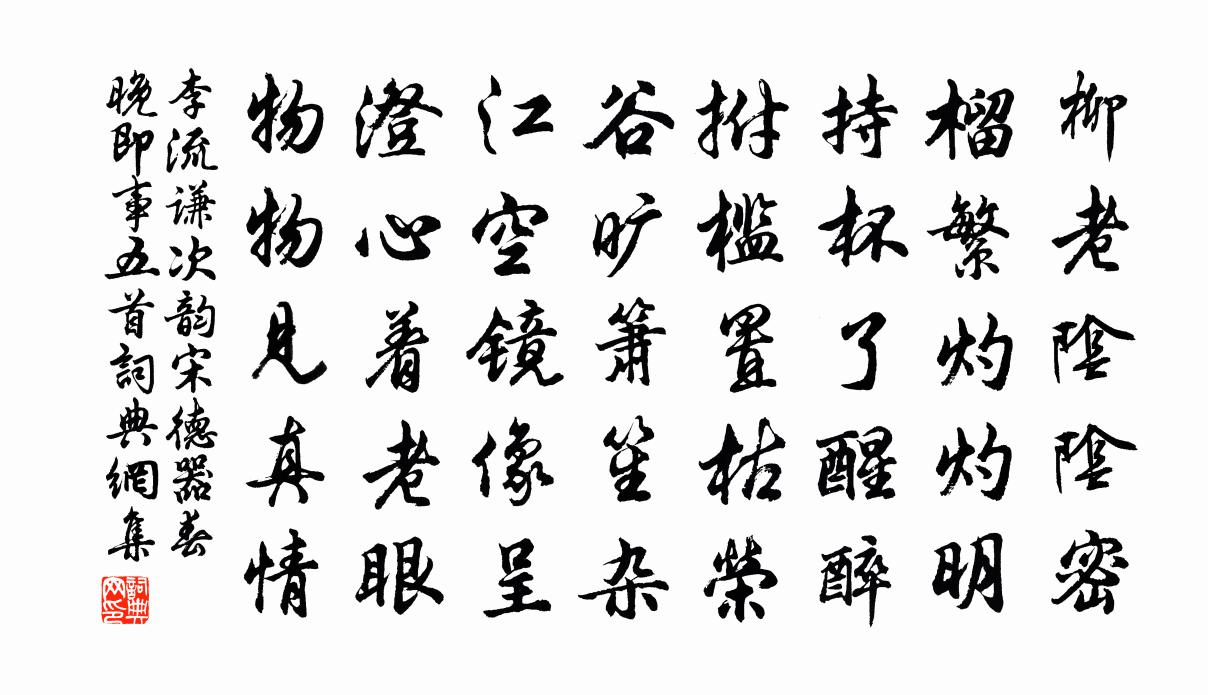 柳老陰陰密
榴繁灼灼明
持杯了醒醉
拊檻置枯榮
谷旷箫笙杂
江空镜像呈
澄心着老眼
物物見真情
李流谦次韵宋德器春
晚即事五首詞典網集
詞典网印